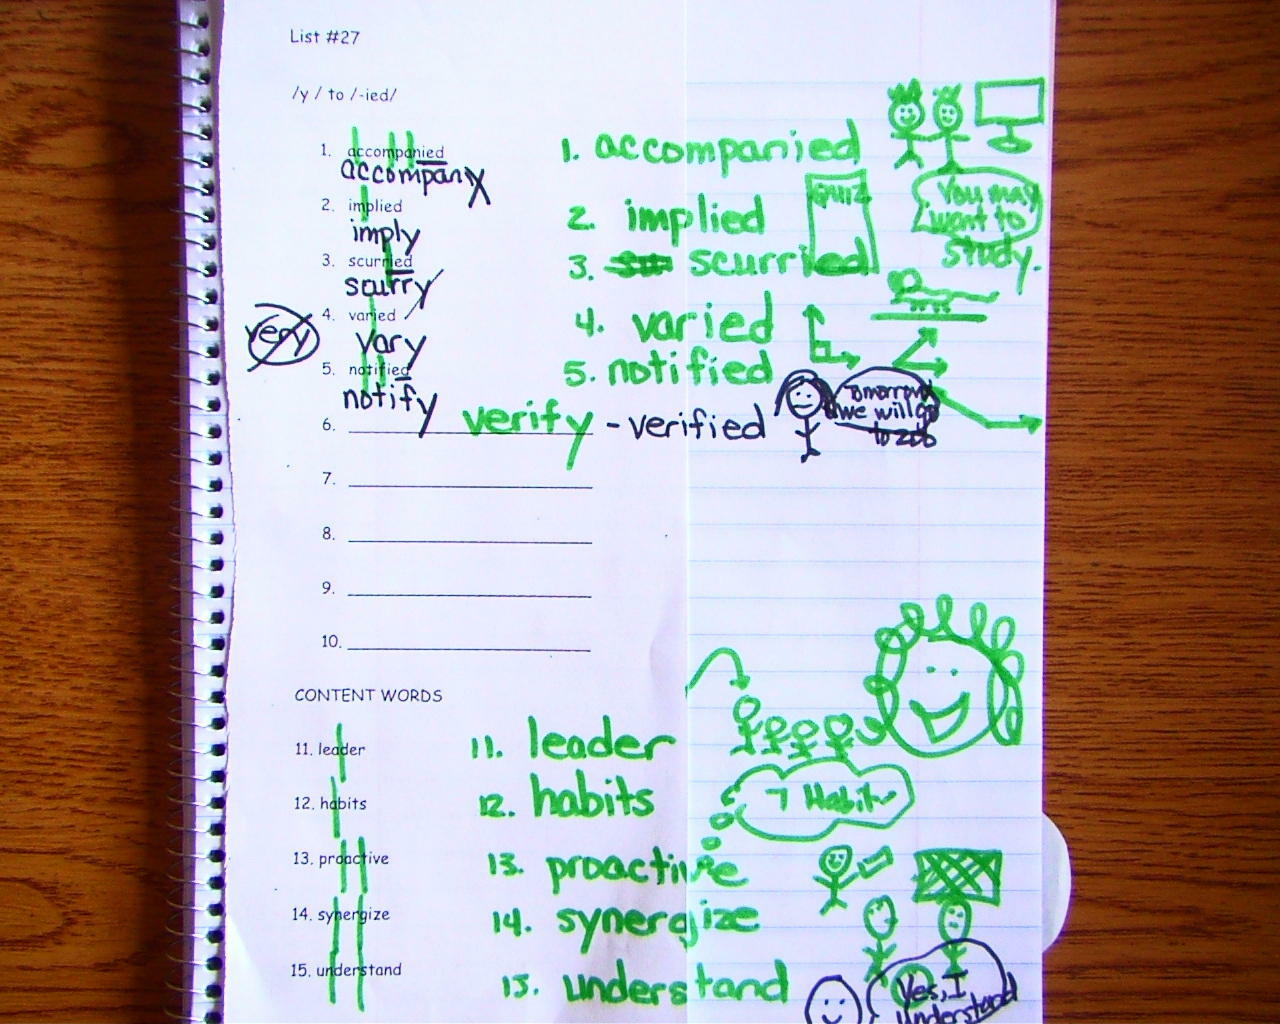 List #27
/y / to /-ied/
1. accompanied
accompany
1. accompanied
2. implied
imply
2. implied
QUIZ
You may
want to
study.
3. scurried
scurry
3. scurried
4. varied
very
vary
4. varied
5. notified
notify
5. notified
Tomorrow
we will go
to zoo
6. verify - verified
7.
8.
9.
10.
CONTENT WORDS
11. leader
11. leader
12. habits
12. habits
7 Habits
13. proactive
13. proactive
14. synergize
14. synergize
15. understand
15. understand
Yes, I
understand